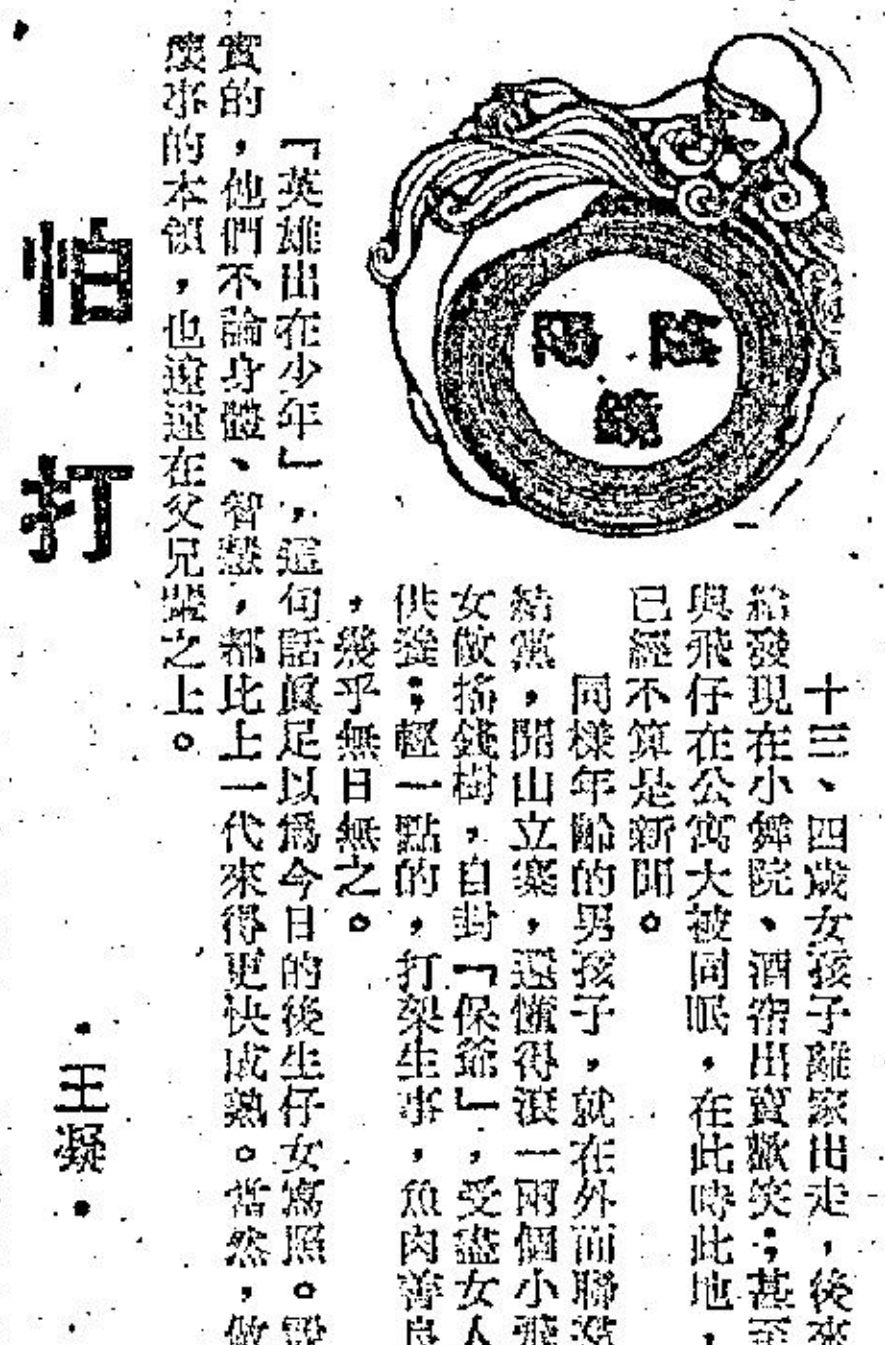 陰陽鏡
怕打
•王凝•
十三、四歲女孩子離家出走,後來
給發現在小舞院、酒帘出賣歡笑;甚至
與飛仔在公寓大被同眠,在此時此地,
已經不算是新聞。
同樣年齡的男孩子,就在外面聯羣
結黨,開山立寨,還懂得滾一兩個小飛
女做搖錢樹,自封「保爺」,受盡女人
供養;輕一點的,打架生事,魚肉善良
,幾乎無日無之。
「英雄出在少年」,這句話眞足以爲今日的後生仔女寫照。說
實的,他們不論身體、智慧,都比上一代來得更快成熟。當然,做
壞事的本領,也遠遠在父兄輩之上。